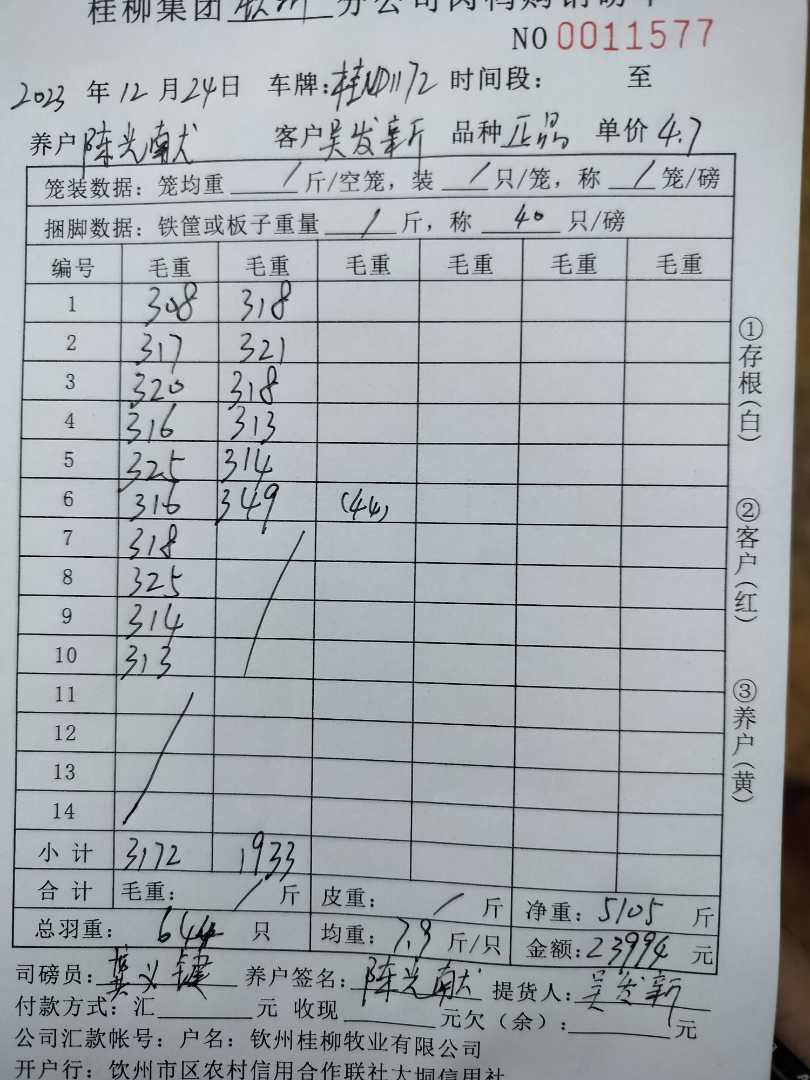 桂柳集团 钦州 分公司肉鸭购销磅单
NO 0011577
2023 年 12 月 24 日 车牌: 桂ND1172 时间段: 至
养户 陈光献 客户 吴发新 品种 正品 单价 4.7
笼装数据: 笼均重 / 斤/空笼, 装 / 只/笼, 称 / 笼/磅
捆脚数据: 铁筐或板子重量 / 斤, 称 40 只/磅
编号 毛重 毛重 毛重 毛重 毛重 毛重
1 308 318
2 317 321
3 320 318
4 316 313
5 325 314
6 316 349 (44)
7 318
8 325
9 314
10 313
11
12
13
14
小计 3172 1933
合计 毛重: / 斤 皮重: / 斤 净重: 5105 斤
总羽重: 644 只 均重: 7.9 斤/只 金额: 23994 元
司磅员: 龚义键 养户签名: 陈光献 提货人: 吴发新
付款方式: 汇 元 收现 元欠(余): 元
公司汇款帐号: 户名: 钦州桂柳牧业有限公司
开户行: 钦州市区农村信用合作联社大垌信用社
①存根(白)
②客户(红)
③养户(黄)